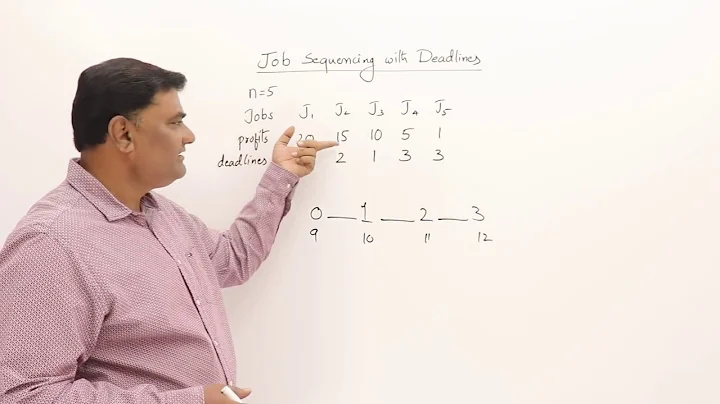 Job Sequencing with Deadlines
n=5
Jobs J1 J2 J3 J4 J5
profits 20 15 10 5 1
deadlines 2 1 3 3
0 — 1 — 2 — 3
9 10 11 12